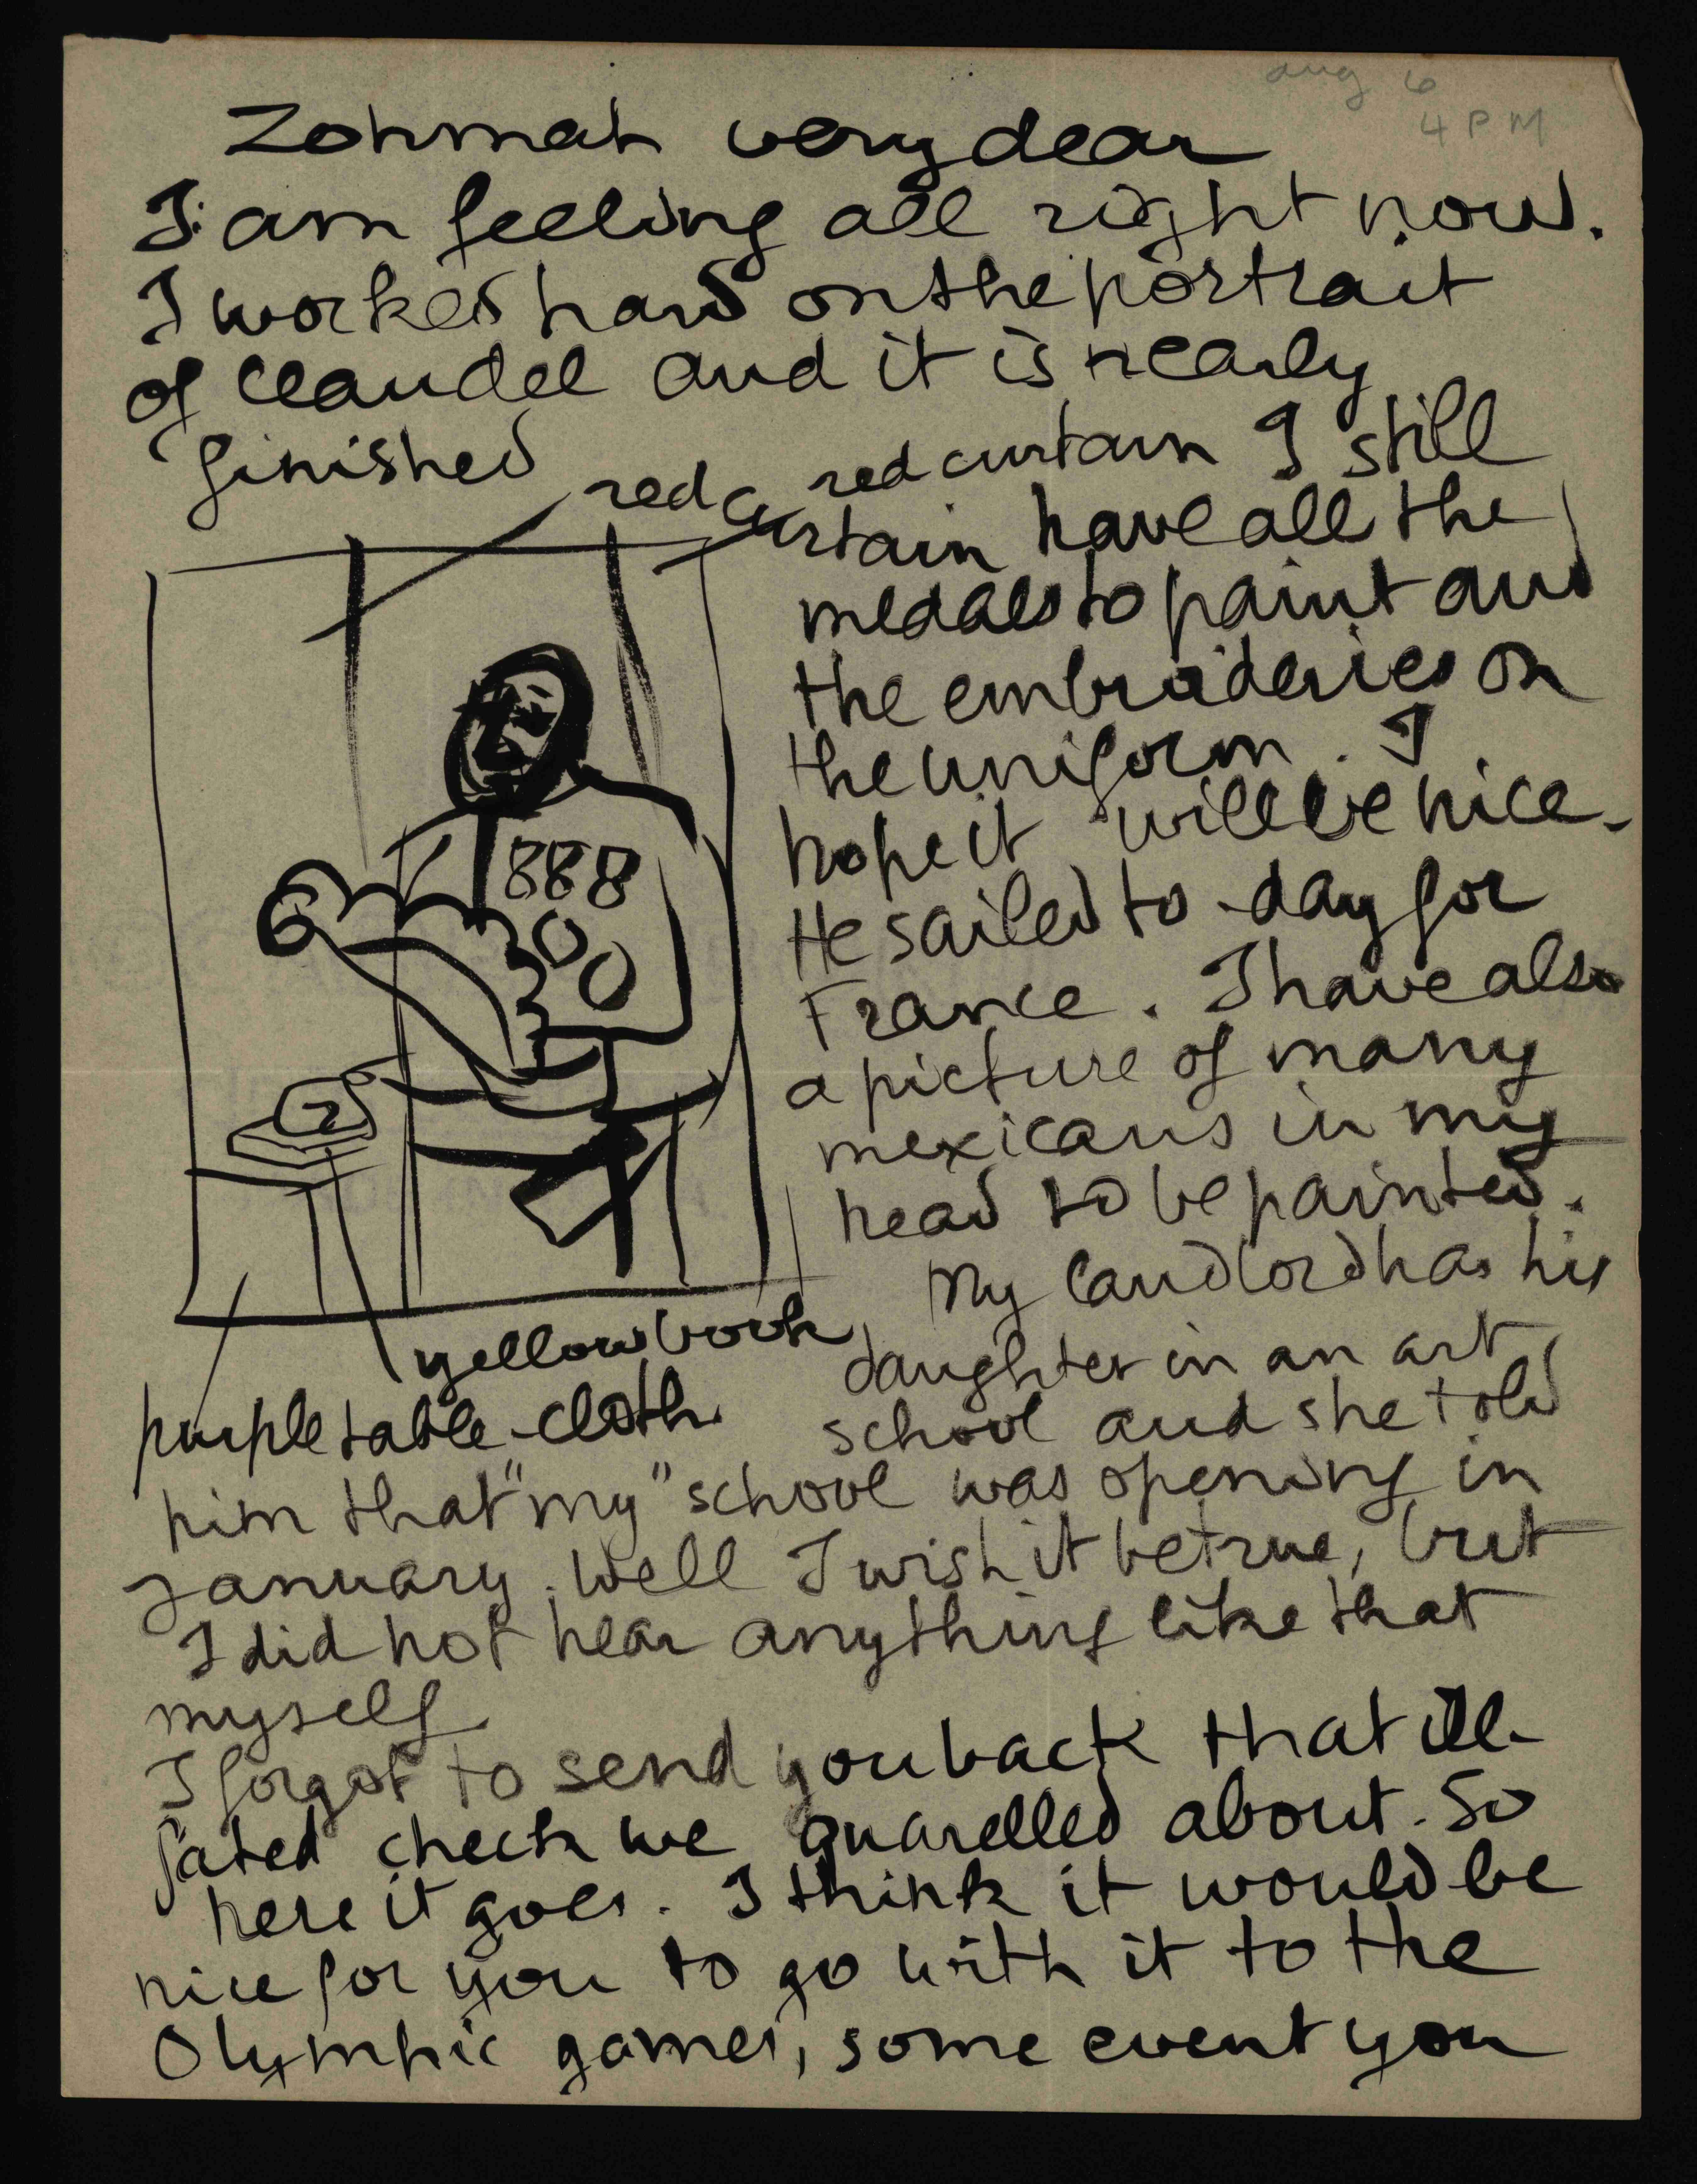 aug 6
4 PM
Zohmah very dear
I am feeling all right now.
I worked hard on the portrait
of Claudel and it is nearly
finished
red curtain
red curtain
I still
have all the
medals to paint and
the embroideries on
the uniform. I
hope it will be nice.
He sailed to-day for
France. I have also
a picture of many
mexicans in my
head to be painted.
My landlord has his
daughter in an art
school and she told
yellow book
purple table-cloth
him that "my" school was opening in
January. Well I wish it be true, but
I did not hear anything like that
myself
I forgot to send you back that ill-
fated check we quarelled about. So
here it goes. I think it would be
nice for you to go with it to the
Olympic games, some event you